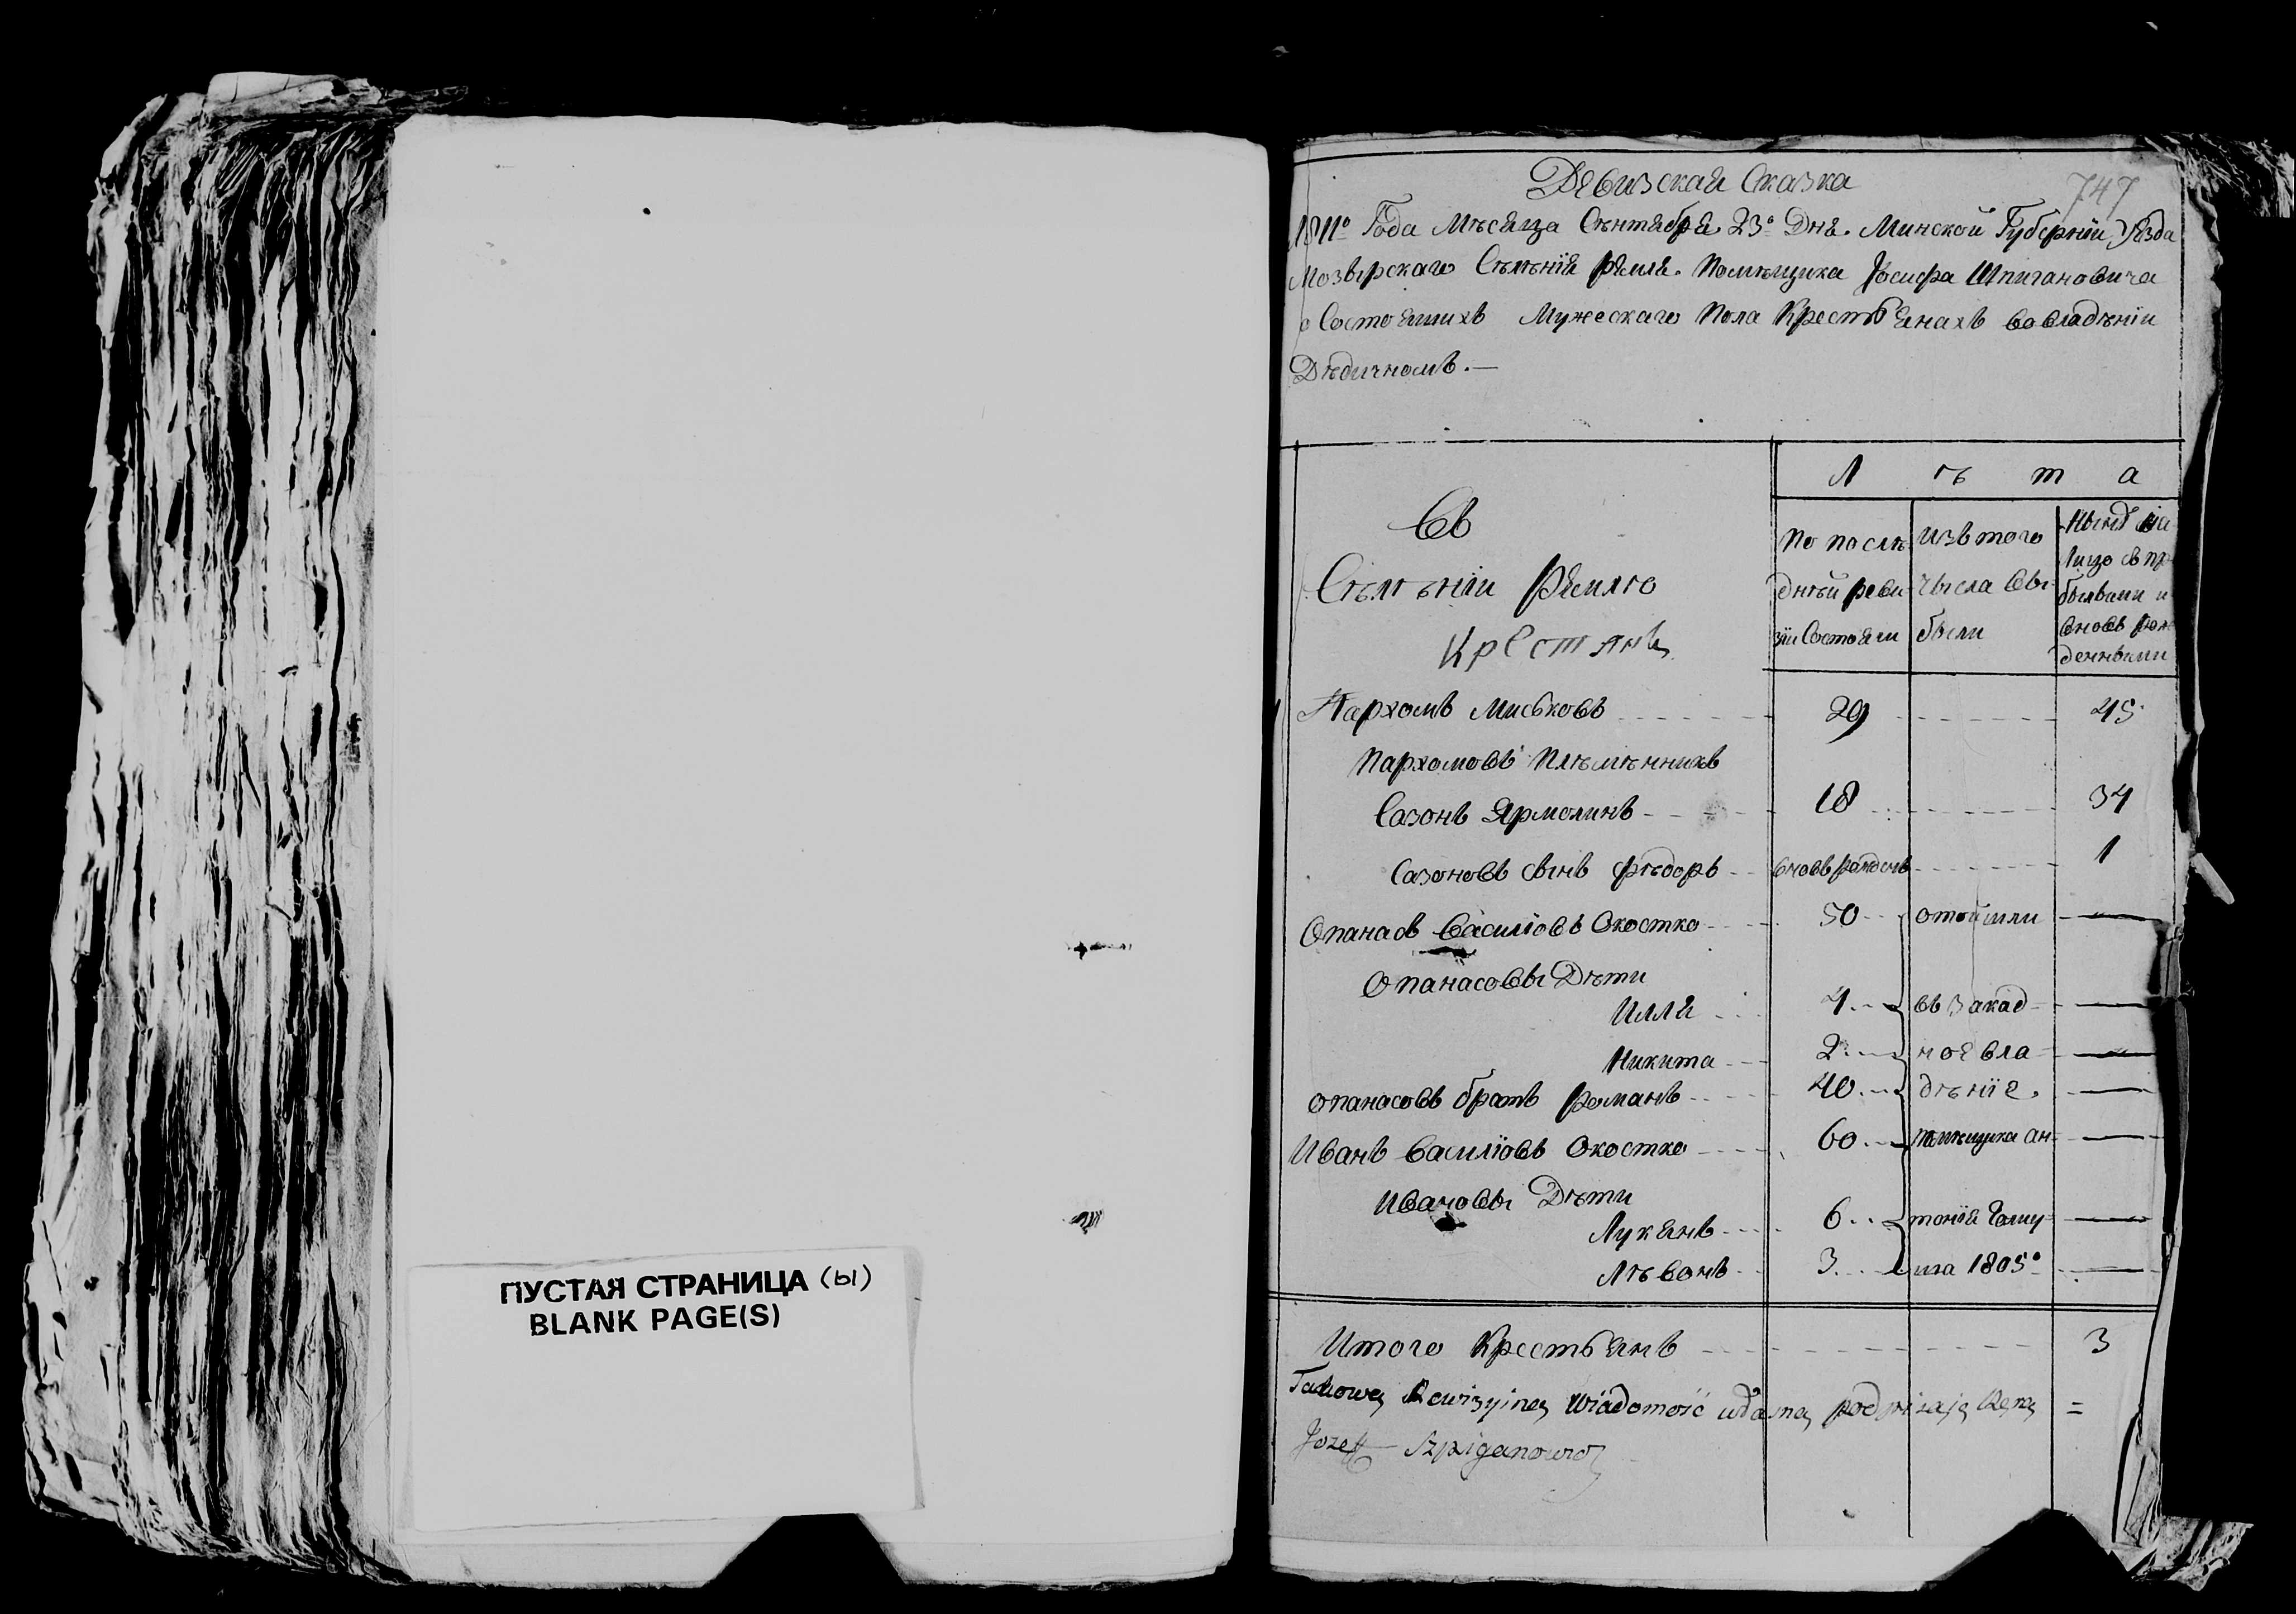 ПУСТАЯ СТРАНИЦА (ы)
BLANK PAGE(S)
747
Ревизская Сказка
1811º Года Мѣсяца Сѣнтября 23º Дня. Минской Губерніи Уѣзда
Мозырскаго Сѣлѣнія Ремля. Помѣщика Іосифа Шпигановича
о Состоящихъ Мужескаго Пола Крестьянахъ во владѣніи
Дѣдичномъ.—
Л ѣ т а
Въ
Сѣлѣніи Ремлю
Крестянъ
По послѣ-
днѣй реви-
зіи Состояли
Изъ того
Числа вы-
были
Нынѣ на
Лицо съ пр
былыми и
вновь рож
денными
Пархомъ Миськовъ 29 45
Пархомовъ Плѣмѣнникъ
Сазонъ Ярмолинъ 18 34
Сазоновъ сынъ Ѳѣдоръ вновь рожденъ 1
Опанасъ Василіовъ Окостко 50 отойшли
Опанасовы Дѣти
Илля 4 въ Заклад-
Никита 2 ноя вла-
Опанасовъ братъ Романъ 40 дѣніе
Иванъ Василіовъ Окостко 60 помѣщика Ан-
Ивановы Дѣти
Лукянъ 6 тонія
Лѣвонъ 3 ша 1805º
Итого Крестьянъ 3
Takową Rewizyiną Wiadomość podpisaję Ręką =
Jozeff Szpiganowicz